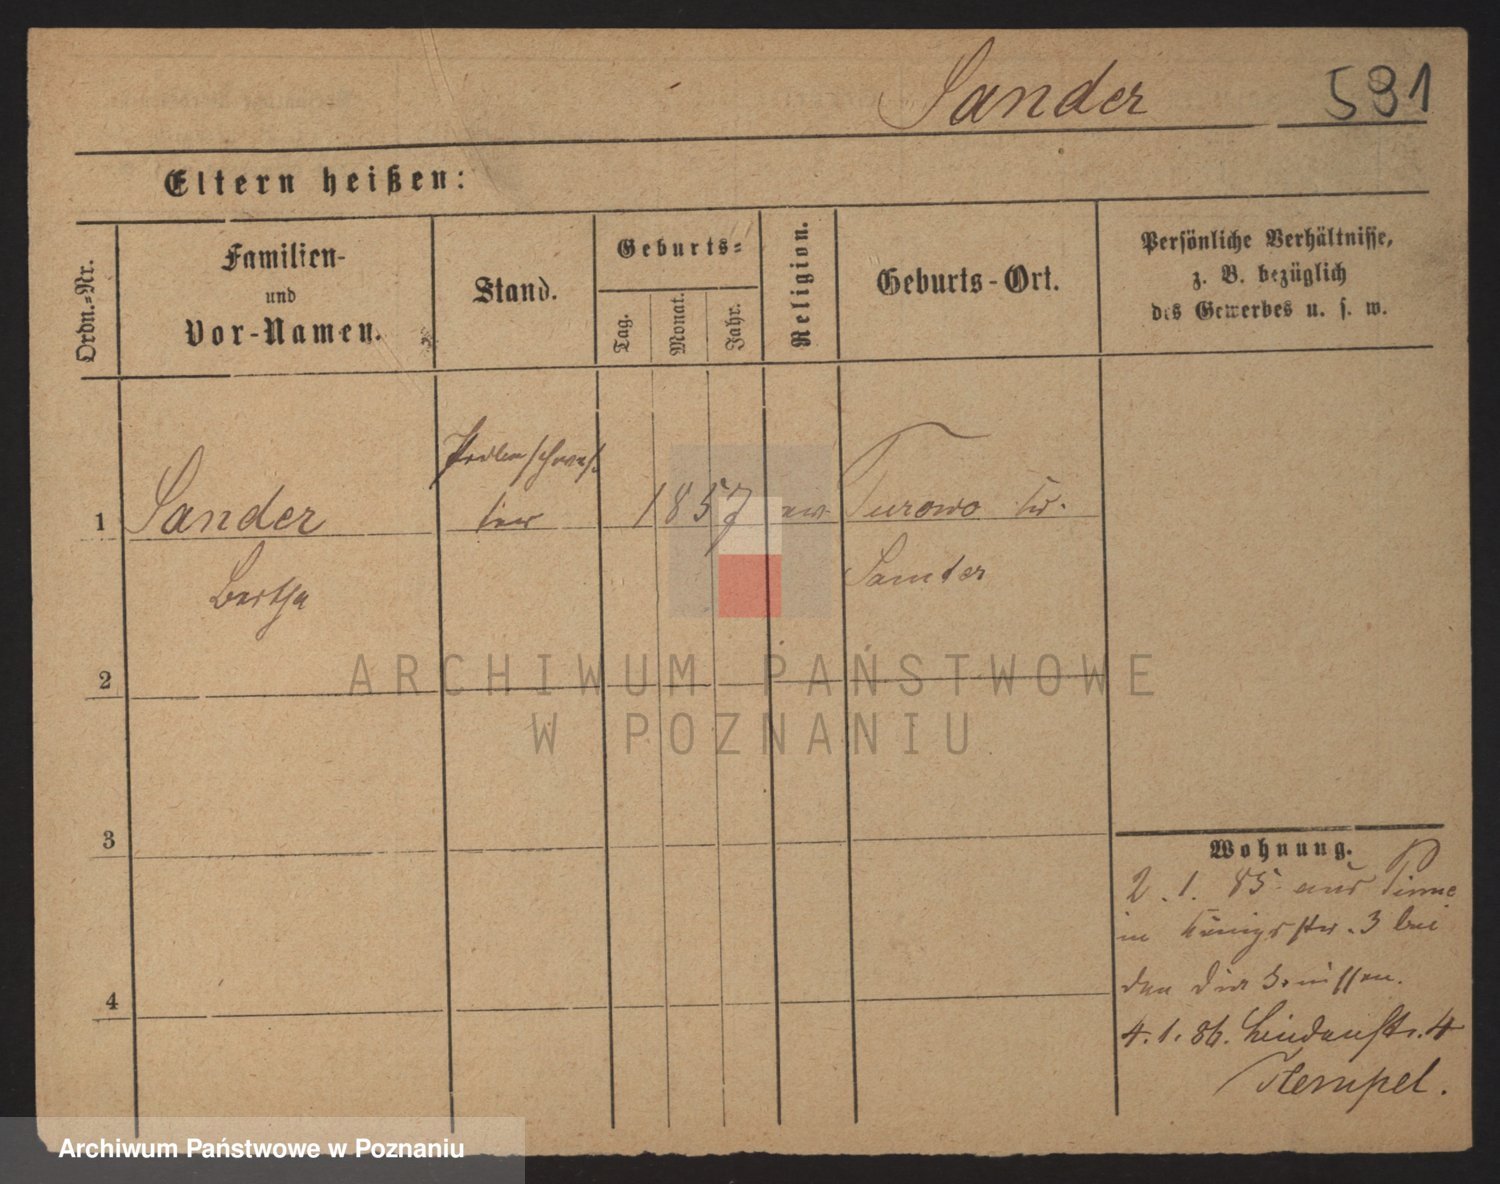 Sander
591
Eltern heißen:
Ordn.-Nr.
Familien-
und
Vor-Namen.
Stand.
Geburts-
Tag.
Monat.
Jahr.
Religion.
Geburts-Ort.
Persönliche Verhältnisse,
z. B. bezüglich
des Gewerbes u. s. w.
1
Sander
Bertha
1857
ev.
Turowo Kr.
Samter
2
3
4
Wohnung.
2. 1. 85 aus Pinne
in Königsstr. 3 bei
den
4. 1. 86. Lindenstr. 4
Hempel.
ARCHIWUM PAŃSTWOWE
W POZNANIU
Archiwum Państwowe w Poznaniu